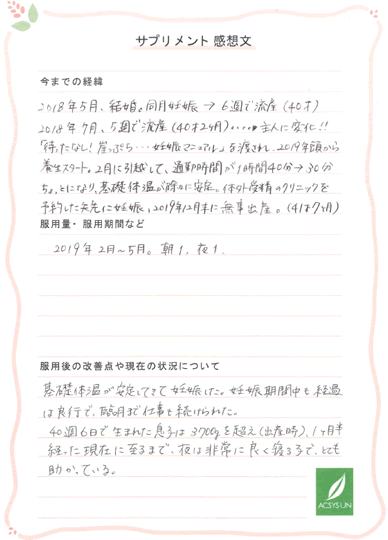 サプリメント 感想文
今までの経緯
2018年5月、結婚。同月妊娠 → 6週で流産 (40才)
2018年7月、5週で流産 (40才2ヶ月)・・・・主人に変化!!
「待ったなし! 崖っぷち・・・妊娠マニュアル」を渡され、2019年頭から
養生スタート。2月に引越して、通勤時間が1時間40分→30分
ちょいとになり、基礎体温が徐々に安定。体外受精のクリニックを
予約した矢先に妊娠、2019年12月末に無事出産。(41才7ヶ月)
服用量・服用期間など
2019年2月〜5月。朝1、夜1
服用後の改善点や現在の状況について
基礎体温が安定してきて妊娠した。妊娠期間中も経過
は良行で、臨月まで仕事も続けられた。
40週6日で生まれた息子は3700gを超え(出産時)、1ヶ月半
経った現在に至るまで、夜は非常に良く寝る子で、とても
助かっている。
ACSYSUN